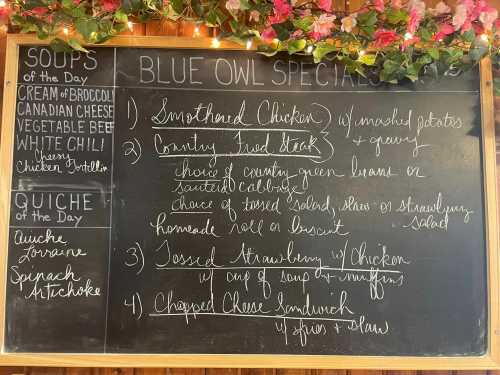 SOUPS
of the Day
CREAM of BROCCOLI
CANADIAN CHEESE
VEGETABLE BEEF
WHITE CHILI
Cheesy
Chicken Tortellin
QUICHE
of the DAY
Quiche
Lorraine
Spinach
Artichoke
BLUE OWL SPECIALS
1) Smothered Chicken) w/ mashed potatoes
2) Country Fried Steak) + gravy
choice of country green beans or
sauteed cabbage
choice of tossed salad, slaw or strawberry
homeade roll or biscuit salad
3) Tossed Strawberry w/ Chicken
w/ cup of soup + muffins
4) Chopped Cheese Sandwich
w/ fries + slaw